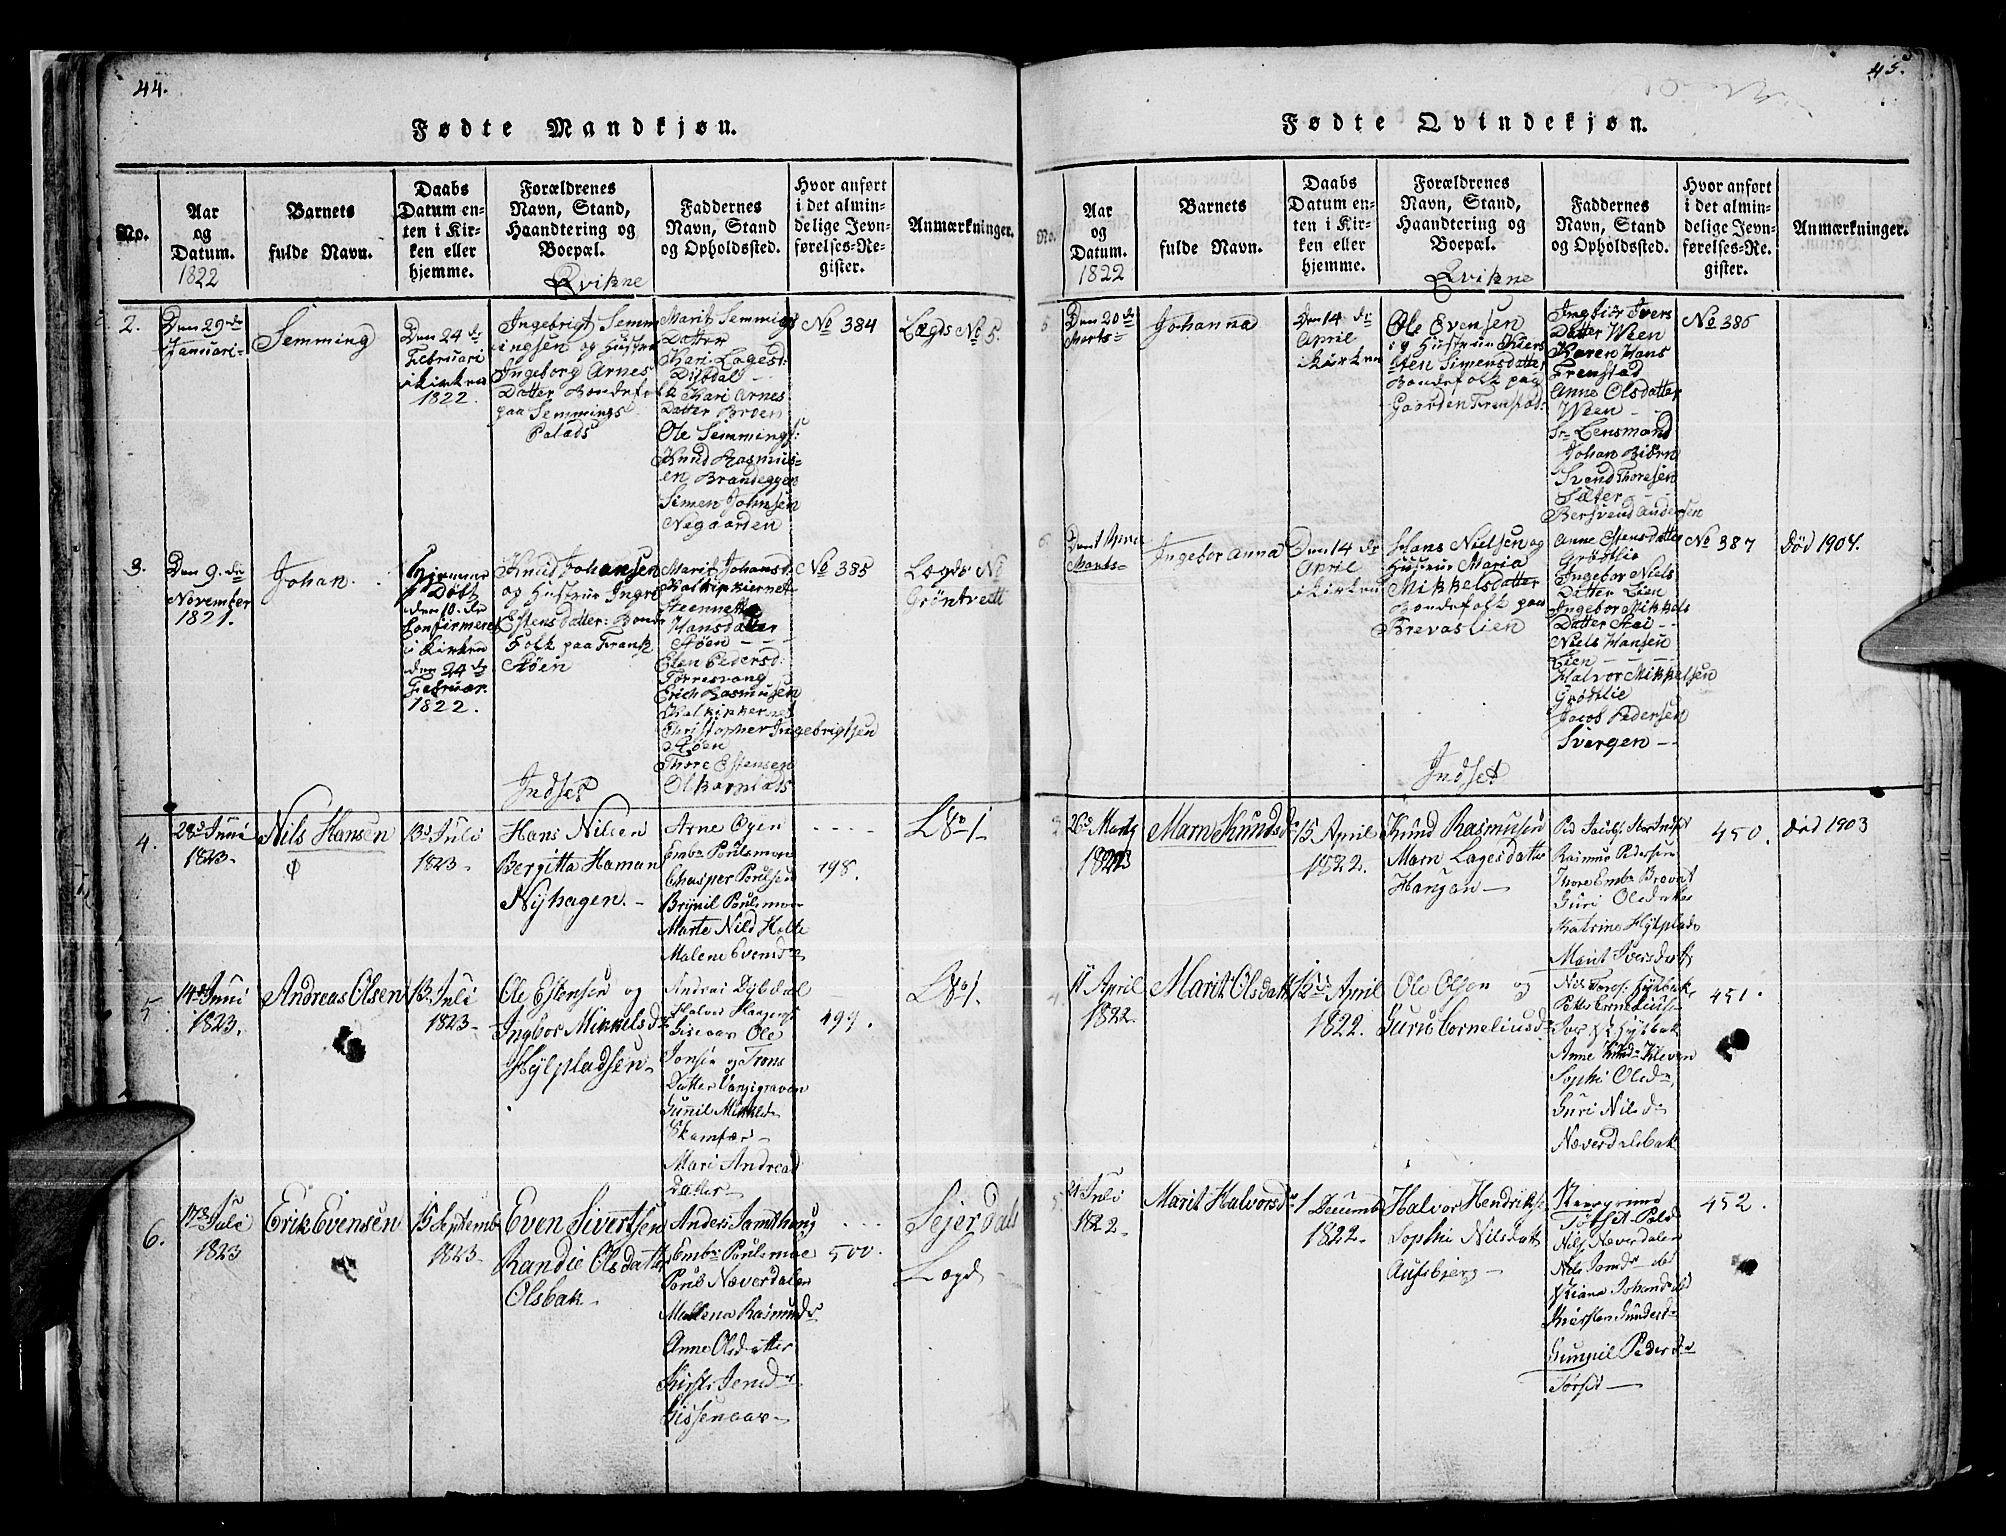 44.
Fødte Mandkjøn.
No.
Aar
og
Datum.
1822
Barnets
fulde Navn.
Daabs
Datum en-
ten i Kir-
ken eller
hjemme.
Forældrenes
Navn, Stand,
Haandtering og
Boepæl.
Qvikne
Faddernes
Navn, Stand
og Opholdssted.
Hvor anført
i det almin-
delige Jevn-
førelses-Re-
gister.
Anmærkninger.
2.
Den 29de
Januari
Semming
Den 24 de
Februari
i kirken
1822.
Ingebrigt Semm
ingsen og Hustru
Ingeborg Arnes
Datter Bondefolk
paa Semmings
Palads
Marit Semmings
Datter
Kari Lagesd:
Dybdal
Kari Arnes
Datter Broen
Ole Semmings:
Knud Rasmus-
en Brandeggen
Simen Johnsen
Negaarden
No 384
Lægds No 5.
3.
Den 9. de
November
1821.
Johan.
Hjemme
Døbt
den 10. de
Confirmeret
i Kirken
den 24 de
Februar.
1822.
Knud Johansen
og Hustrue Ingri
Estensdatter: Bonde
Folk paa Frank
Støen
Marit Johansd:
Kalkipkiernet
Jeennette
Hansdatter
Støen
Elen Pedersd:
Torresvang
Erich Rasmusen
Kalkipkernet
Christopher Ingebrigtsen
Støen
Thore Estensen
Olkarplads
No 385
Lægds No
Grøntvedt
Indset
4.
28d Juni
1823.
Nils Hansen
φ
13d Juli
1823
Hans Nilsen
Bergitta Haman
Nyhagen.
Arne Oyen
Embr Poulsmoe
Chasper Poulsen
Brynil Poulsmoe
Marte Nild Holte
Malene Evensdr
498.
L 80 1
5.
14d Juni
1823.
Andreas Olsen
13 Juli
1823
Ole Estensen og
Ingbor Mikkelsdr
Hylpladsen
Andreas Dybdal
Halvor Haagens
Giseaas Ole
Jonsen og Trons
Datter Vangsgraven
Gunnil Mikkeld
Skamfær
Mari Andread
Datter
499.
L 80 1.
6.
17d Juli
1823
Erik Evensen
15 Septemb
1823
Even Sivertsen
Randie Olsdatter
Olsbak
Anders Samthaug
Embr Poulsmoe
Poul Næverdalen
Mallena Rasmusdr
Anne Olsdatter
Kirsti Jensdr
Gissenaas
500.
Sejerdals
Lægd
45.
Fødte Qvindekjøn.
No.
Aar
og
Datum.
1822
Barnets
fulde Navn.
Daabs
Datum en-
ten i Kir-
ken eller
hjemme.
Forældrenes
Navn, Stand,
Haandtering og
Boepæl.
Qvikne
Faddernes
Navn, Stand
og Opholdssted.
Hvor anført
i det almin-
delige Jevn-
førelses-Re-
gister.
Anmærkninger.
5
Den 20 de
Marts
Johanna
Den 14 de
April
i kirken
Ole Evensen
og Hustrue Kiers
ten Simensdatter
Bondefolk paa
Gaarden Frenstad:
Ingbior Ivers
Datter Ween
Karen Hans
Frenstad
Anne Olsdatter
Ween
Sr Lensmand
Johan Biørn
Svend Thoresen
Sæter
Bersvend Andersen
No 386
6
Den 1 April
Marts
Ingebor Anna
Den 14 de
April
i kirken
Hans Nielsen og
Hustrue Maria
Mikkelsdatter
Bondefolk paa
Brevaslien
Anne Estensdatter
Grødtlie
Ingebor Niels
Ditter Lien
Ingebor Mikkels
Datter Aai
Niels Hansen
Lien
Halvor Mikkelsen
Grødtlie
Jacob Pedersen
Svergen
No 387
Død 1904.
Indset
3.
26d Marty
1822
Marn Knudsdr
15 April
1822.
Knud Rasmusen
Marn Lagesdatter
Hangan
Rasmus Pedersen
Thore Embr Brovot
Guri Olsdr
Katrine Hylplads
Marit Iversdatt
450.
død 1903
4.
11 April
1822.
Marit Olsdatt
15d April
1822.
Ole Olsen og
Guru Corneliusd
Petter Cornelius
Anne Kleven
Sophi Olsdr
Guri Nilsdr
Næverdalsbak
451.
5.
21 Juli
1822
Marit Halvorsdr
1 Decemb
1822
Halvor Hendrikse
Sophi Nilsdatt
Aufsbjerg
Nils Næverdalen
Nils Jensdr
Kiersten Gunders
Gunnil Peder Dr
Torset
452.